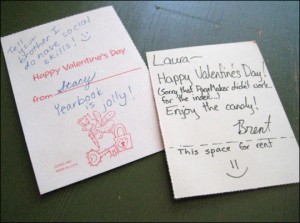 Tell your
brother I
do have social
skills! :)
Happy Valentine's Day
from Stacy
Yearbook
is jolly!
Laura—
Happy Valentine's Day!
(Sorry that PageMaker didn't work
for the index...)
Enjoy the candy!
Brent
This space for rent